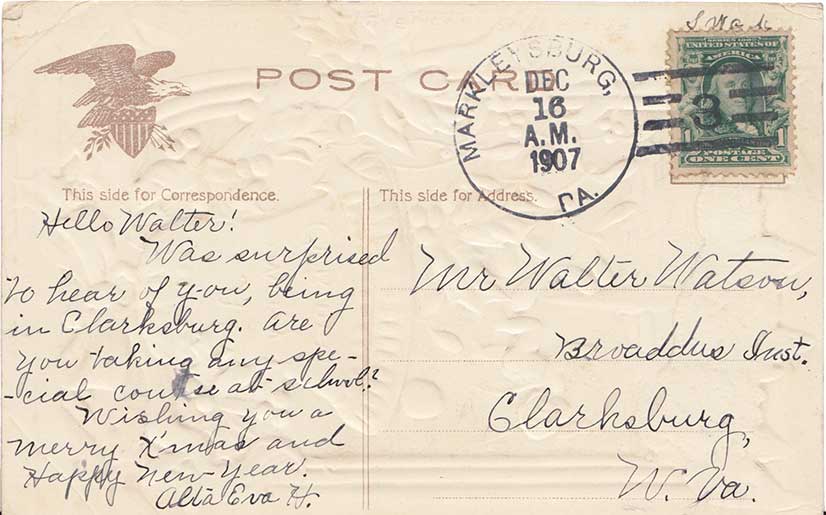 POST CARD
MARKLEYSBURG, PA.
DEC
16
A.M.
1907
3
SERIES 1902
UNITED STATES OF AMERICA
POSTAGE
1 1
ONE CENT
This side for Correspondence.
Hello Walter!
Was surprised
to hear of you, being
in Clarksburg. are
you taking any spe-
-cial course at school?
Wishing you a
merry X'mas and
Happy New-Year.
Alta Eva H.
This side for Address.
Mr Walter Watson,
Broaddus Inst.
Clarksburg,
W. Va.